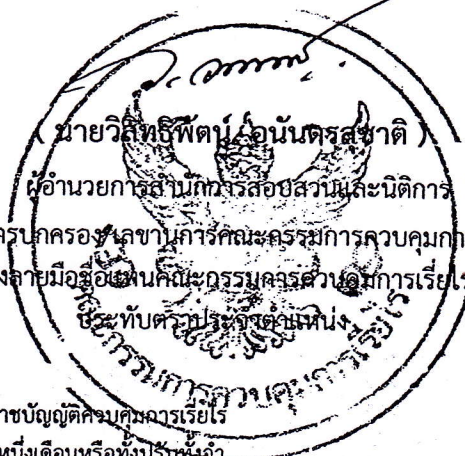 ( นายวิสิทธิพัฒน์ อนันตรสุชาติ )
ผู้อำนวยการสำนักการสอบสวนและนิติการ
ปกครอง เลขานุการคณะกรรมการควบคุมกา
ลายมือชื่อแทนคณะกรรมการควบคุมการเรี่ยไร
ประทับตราประจำตำแหน่ง
กรรมการควบคุมการเรี่ยไร
าชบัญญัติควบคุมการเรี่ยไร
หนึ่งเดือนหรือทั้งปรับทั้งจำ